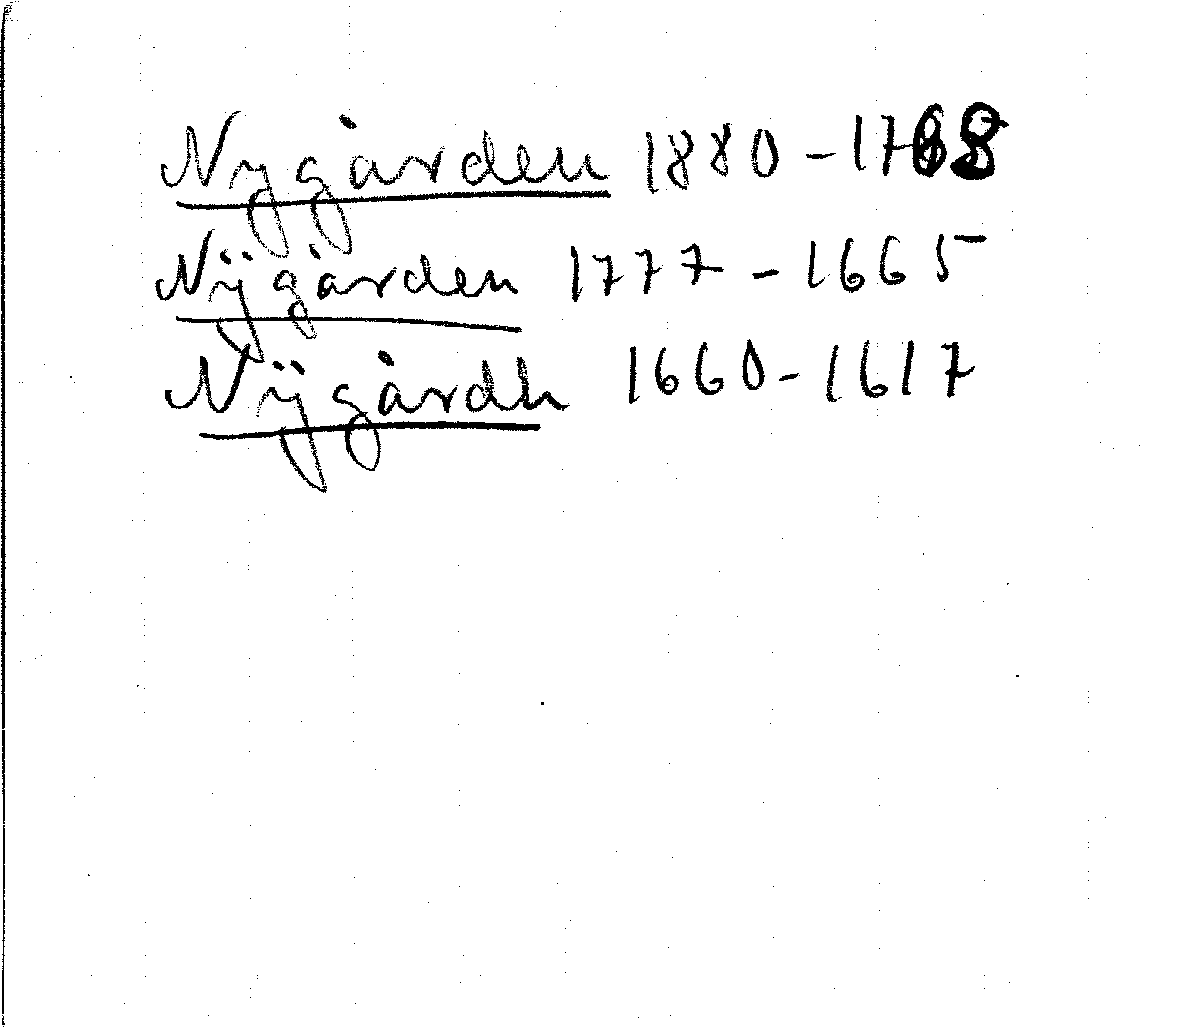 Nygården 1880 - 1788
Nÿgården 1777 - 1665
Nÿgårdh 1660 - 1617